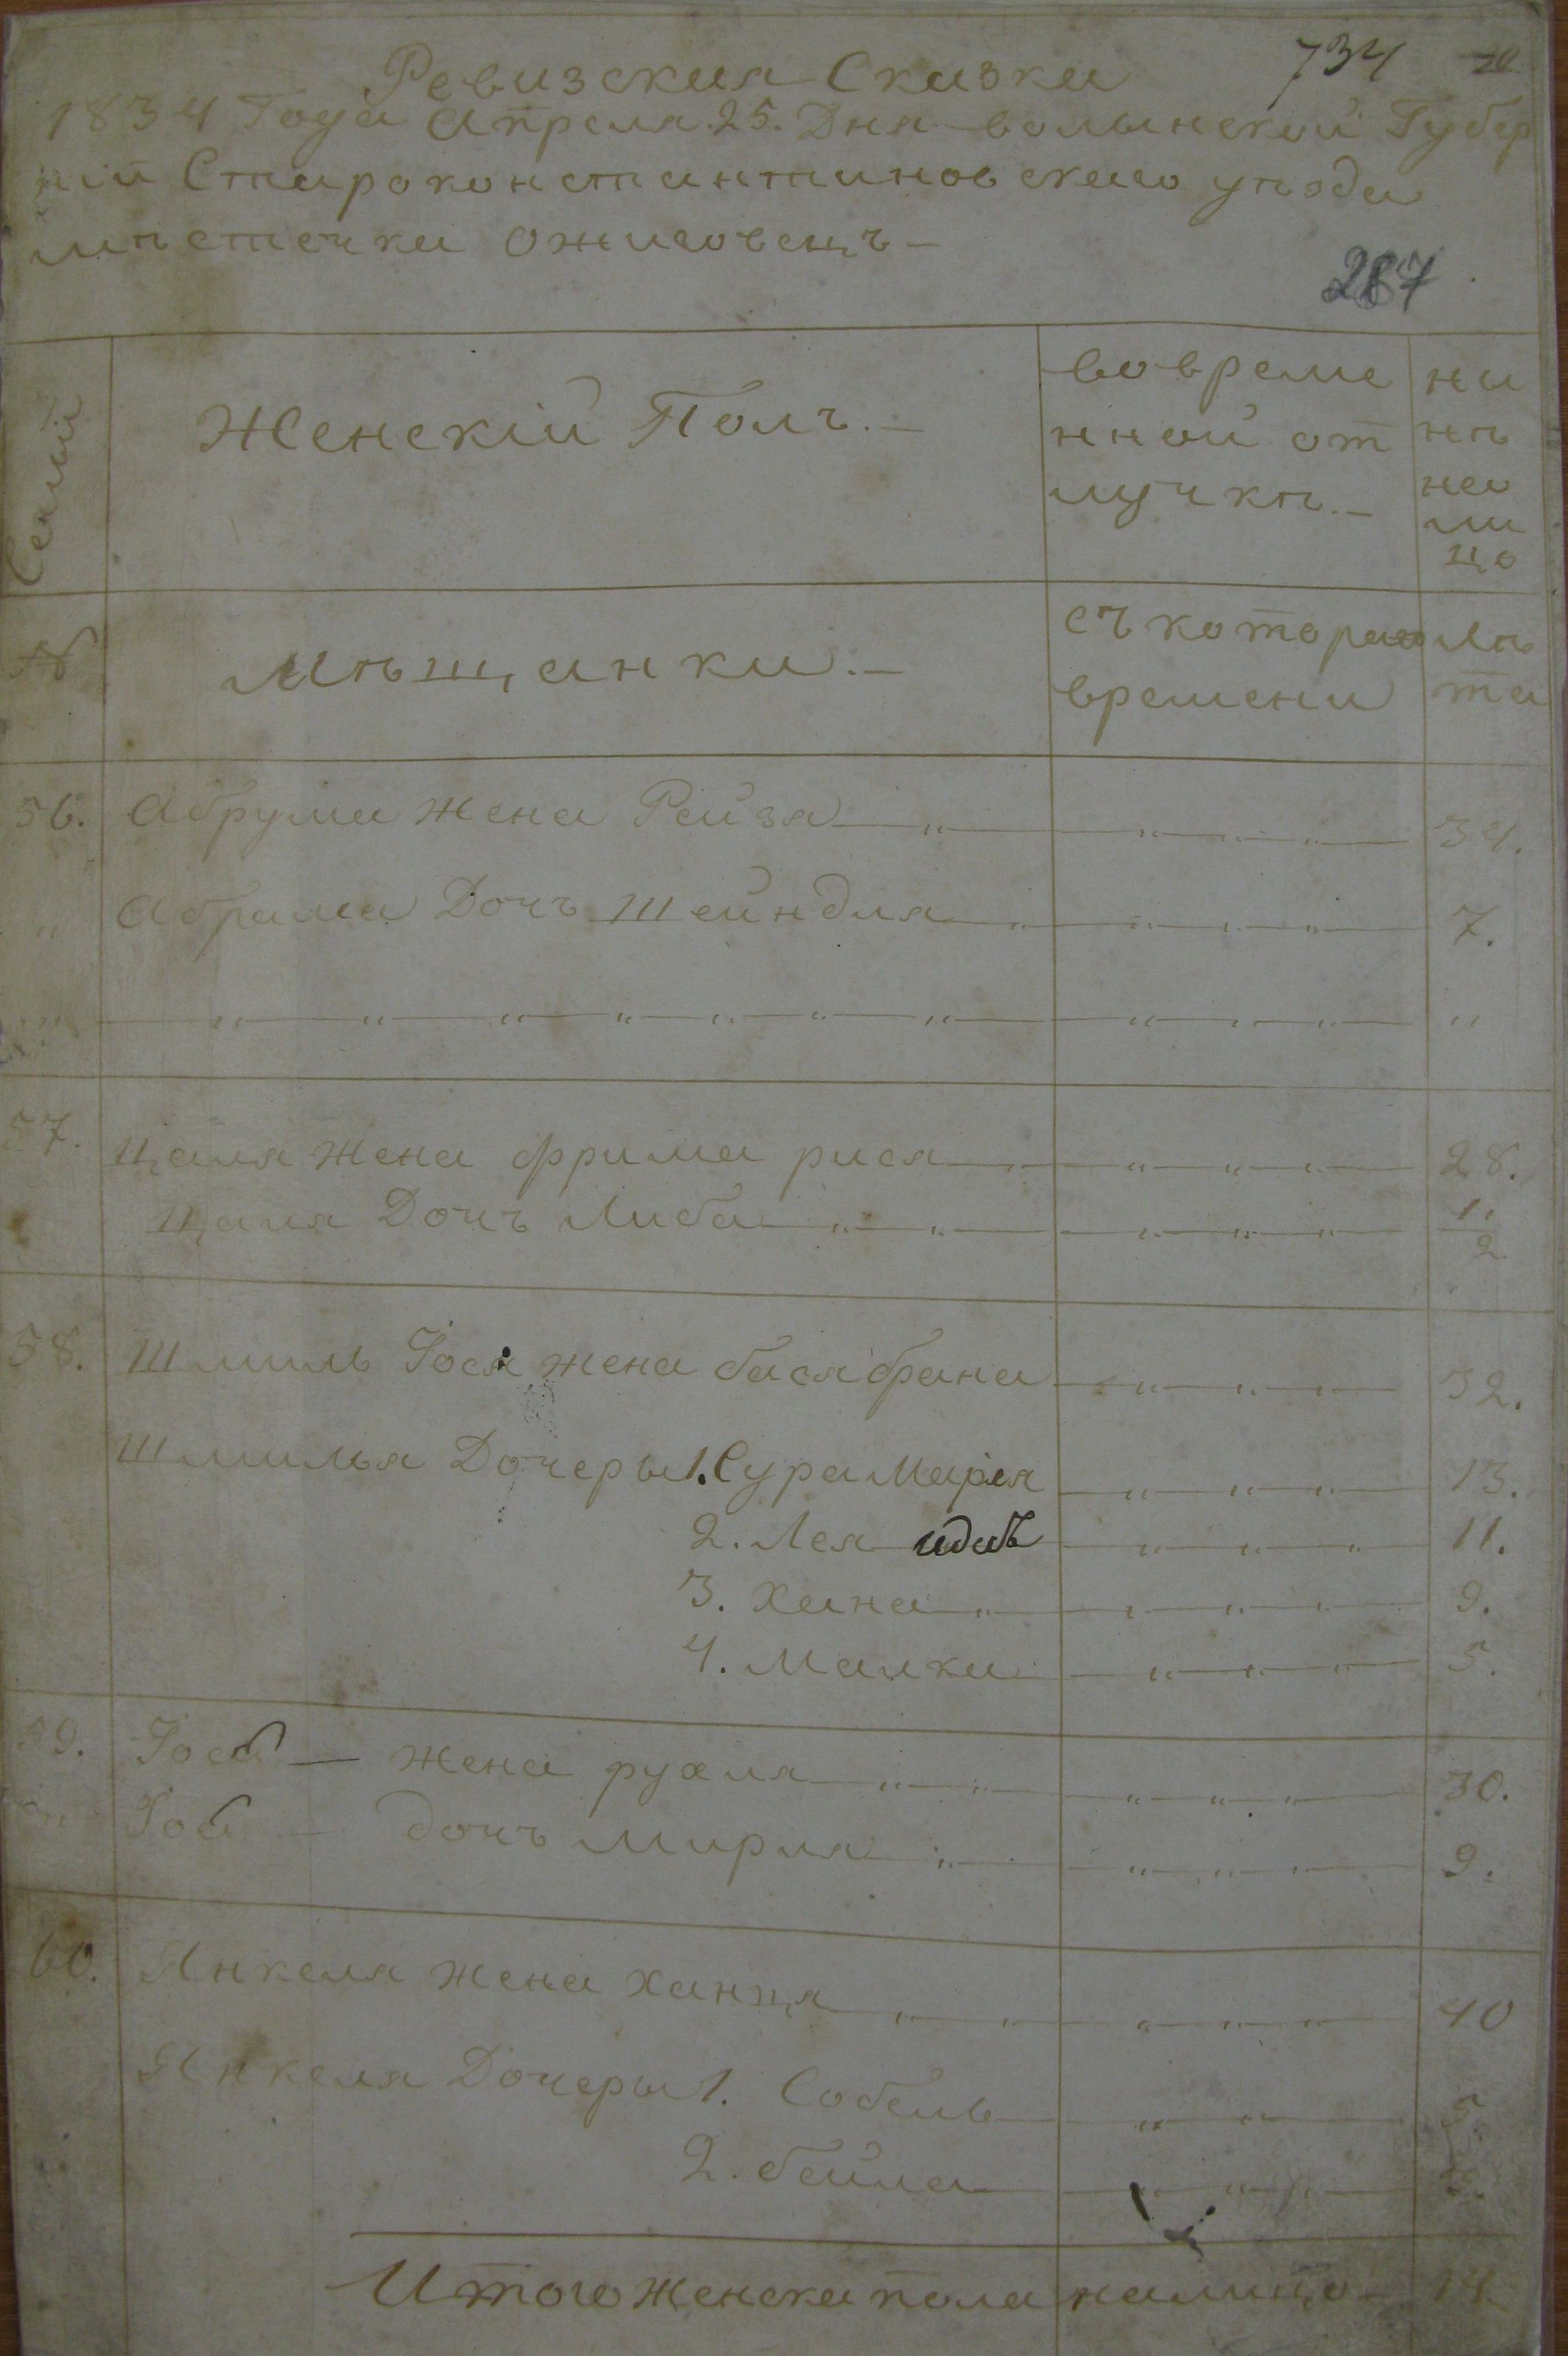 734
Ревизская Сказка
1834 Года Апреля 25. Дня волынской Губер
ніи Староконстантиновскаго уѣзда
мѣстечка Ожиговецъ –
287
Семьи
Женскій Полъ. –
во време
нной от
лучкѣ. –
ны
нѣ
на
ли
цо
№
Мѣщанки. –
съ котораго
времени
лѣ
та
56. Абрума жена Рейзя 34.
" Абрама Дочъ Шейндля 7.
57. Цаля жена фрима рися 28.
Цаля Дочъ Либа 1/2
58. Шмиль Іося жена бася брана 32.
Шмилья Дочеры 1. Сура Марія 13.
2. Лея 11.
3. Хана 9.
4. Малка 5.
59. жена рухля 30.
дочъ мирля 9.
60. Янкеля жена ханця 40
Янкеля Дочеры 1. Собель 5.
2. бейла
Итого женска пола налицо – 14